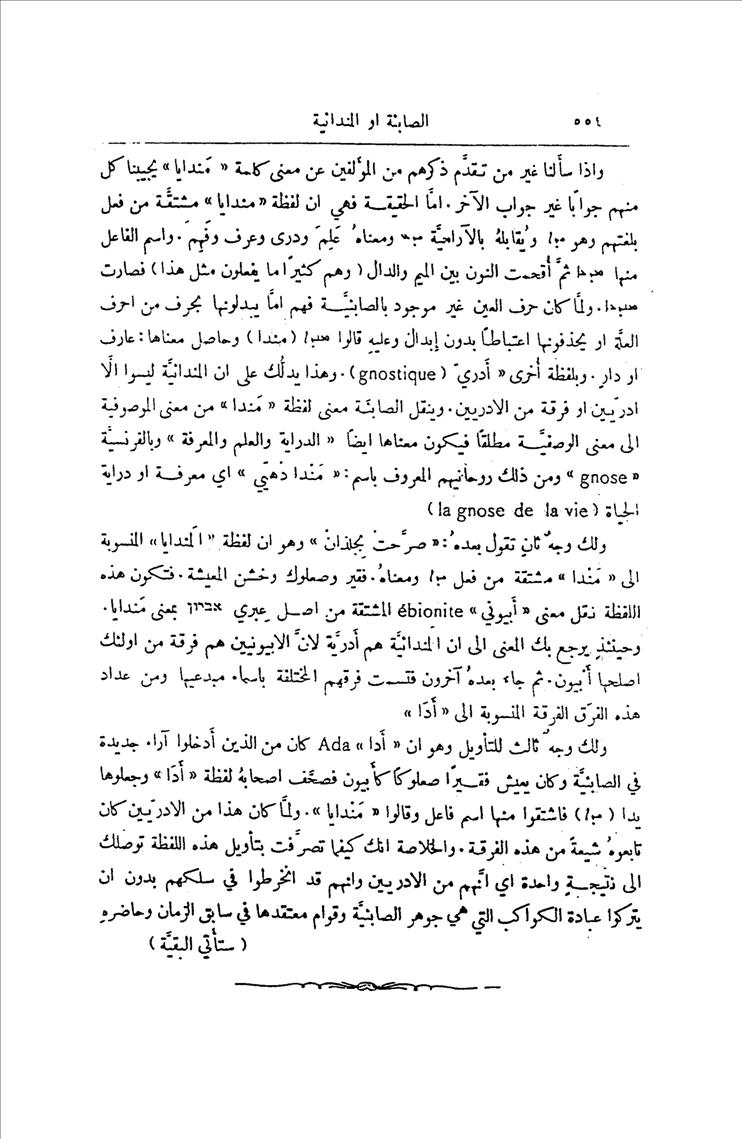 ٥٥٤ الصابئة او المندائية
واذا سألنا غير من تقدَّم ذكرهم من المؤَلفين عن معنى كلمة « مَندايا » يجيبنا كل
منهم جوابًا غير جواب الآخر. امَّا الحقيقــة فهي ان لفظة « مندايا » مشتقَّة من فعل
بلغتهم وهو ويُقابلهُ بالآراميَّة ومعناهُ عَلِمَ ودرى وعرف وفَهِمَ. واسم الفاعل
منها ثمَّ أُقحمت النون بين الميم والدال ( وهم كثيرًا ما يفعلون مثل هذا ) فصارت
ولمَّا كان حرف العين غير موجود بالصابئيَّــة فهم امَّا يبدلونها بحرف من احرف
العلَّة او يحذفونها اعتباطًا بدون إبدال وعليهِ قالوا ( مندا ) وحاصل معناها: عارف
او دارٍ. وبلفظة أُخرى « أَدريّ » ( gnostique ). وهذا يدلُّك على ان المندائيَّة ليسوا الَّا
ادريّين او فرقة من الادريين. وينقل الصابئة معنى لفظة « مَندا » من معنى الموصوفية
الى معنى الوصفيَّــة مطلقًا فيكون معناها ايضًا « الدراية والعلم والمعرفة » وبالفرنسيَّة
« gnose » ومن ذلك روحانيهم المعروف باسم: « مَنْدا دْهَيّي » اي معرفــة او دراية
الحياة ( la gnose de la vie )
ولك وجهٌ ثانٍ تقول بعدهُ: « صرَّحتْ بجلذانْ » وهو ان لفظة « المندايا » المنسوبة
الى « مَنْدا » مشتقة من فعل ومعناهُ. فقير وصعلوك وخشن المعيشة. فتكون هذه
اللفظة نقل معنى « أَبيوني » ébionite المشتقة من اصــل عِبري אביון بمعنى مَندايا.
وحينئذٍ يرجع بك المعنى الى ان المندائيَّة هم أَدريَّة لانَّ الابيونيين هم فرقة من اولئك
اصلحها أَبيون. ثم جاء بعدهُ آخرون فقسمت فرقهم المختلفة باسماء مبدعيها ومن عداد
هذه الفِرَق الفرقة المنسوبة الى « أَدَا »
ولك وجهٌ ثالث للتأويل وهو ان « أَدا » Ada كان من الذين أَدخلوا آراء جديدة
في الصابئيَّة وكان يعيش فقــيرًا صعلوكًا كأَبيون فصحَّف اصحابهُ لفظة « أَدَا » وجعلوها
يدا فاشتقوا منها اسم فاعل وقالوا « مَنْدايا ». ولمَّا كان هذا من الادريّين كان
تابعوهُ شيعةً من هذه الفرقــة. والخلاصة انك كيفما تصرَّفت بتأويل هذه اللفظة توصلك
الى نتيجــةٍ واحدة اي انَّهم من الادريــين وانهم قد انخرطوا في سلكهم بدون ان
يتركوا عبادة الكواكب التي هي جوهر الصابئيَّة وقوام معتقدها في سابق الزمان وحاضرهِ
( ستأتي البقيَّة )